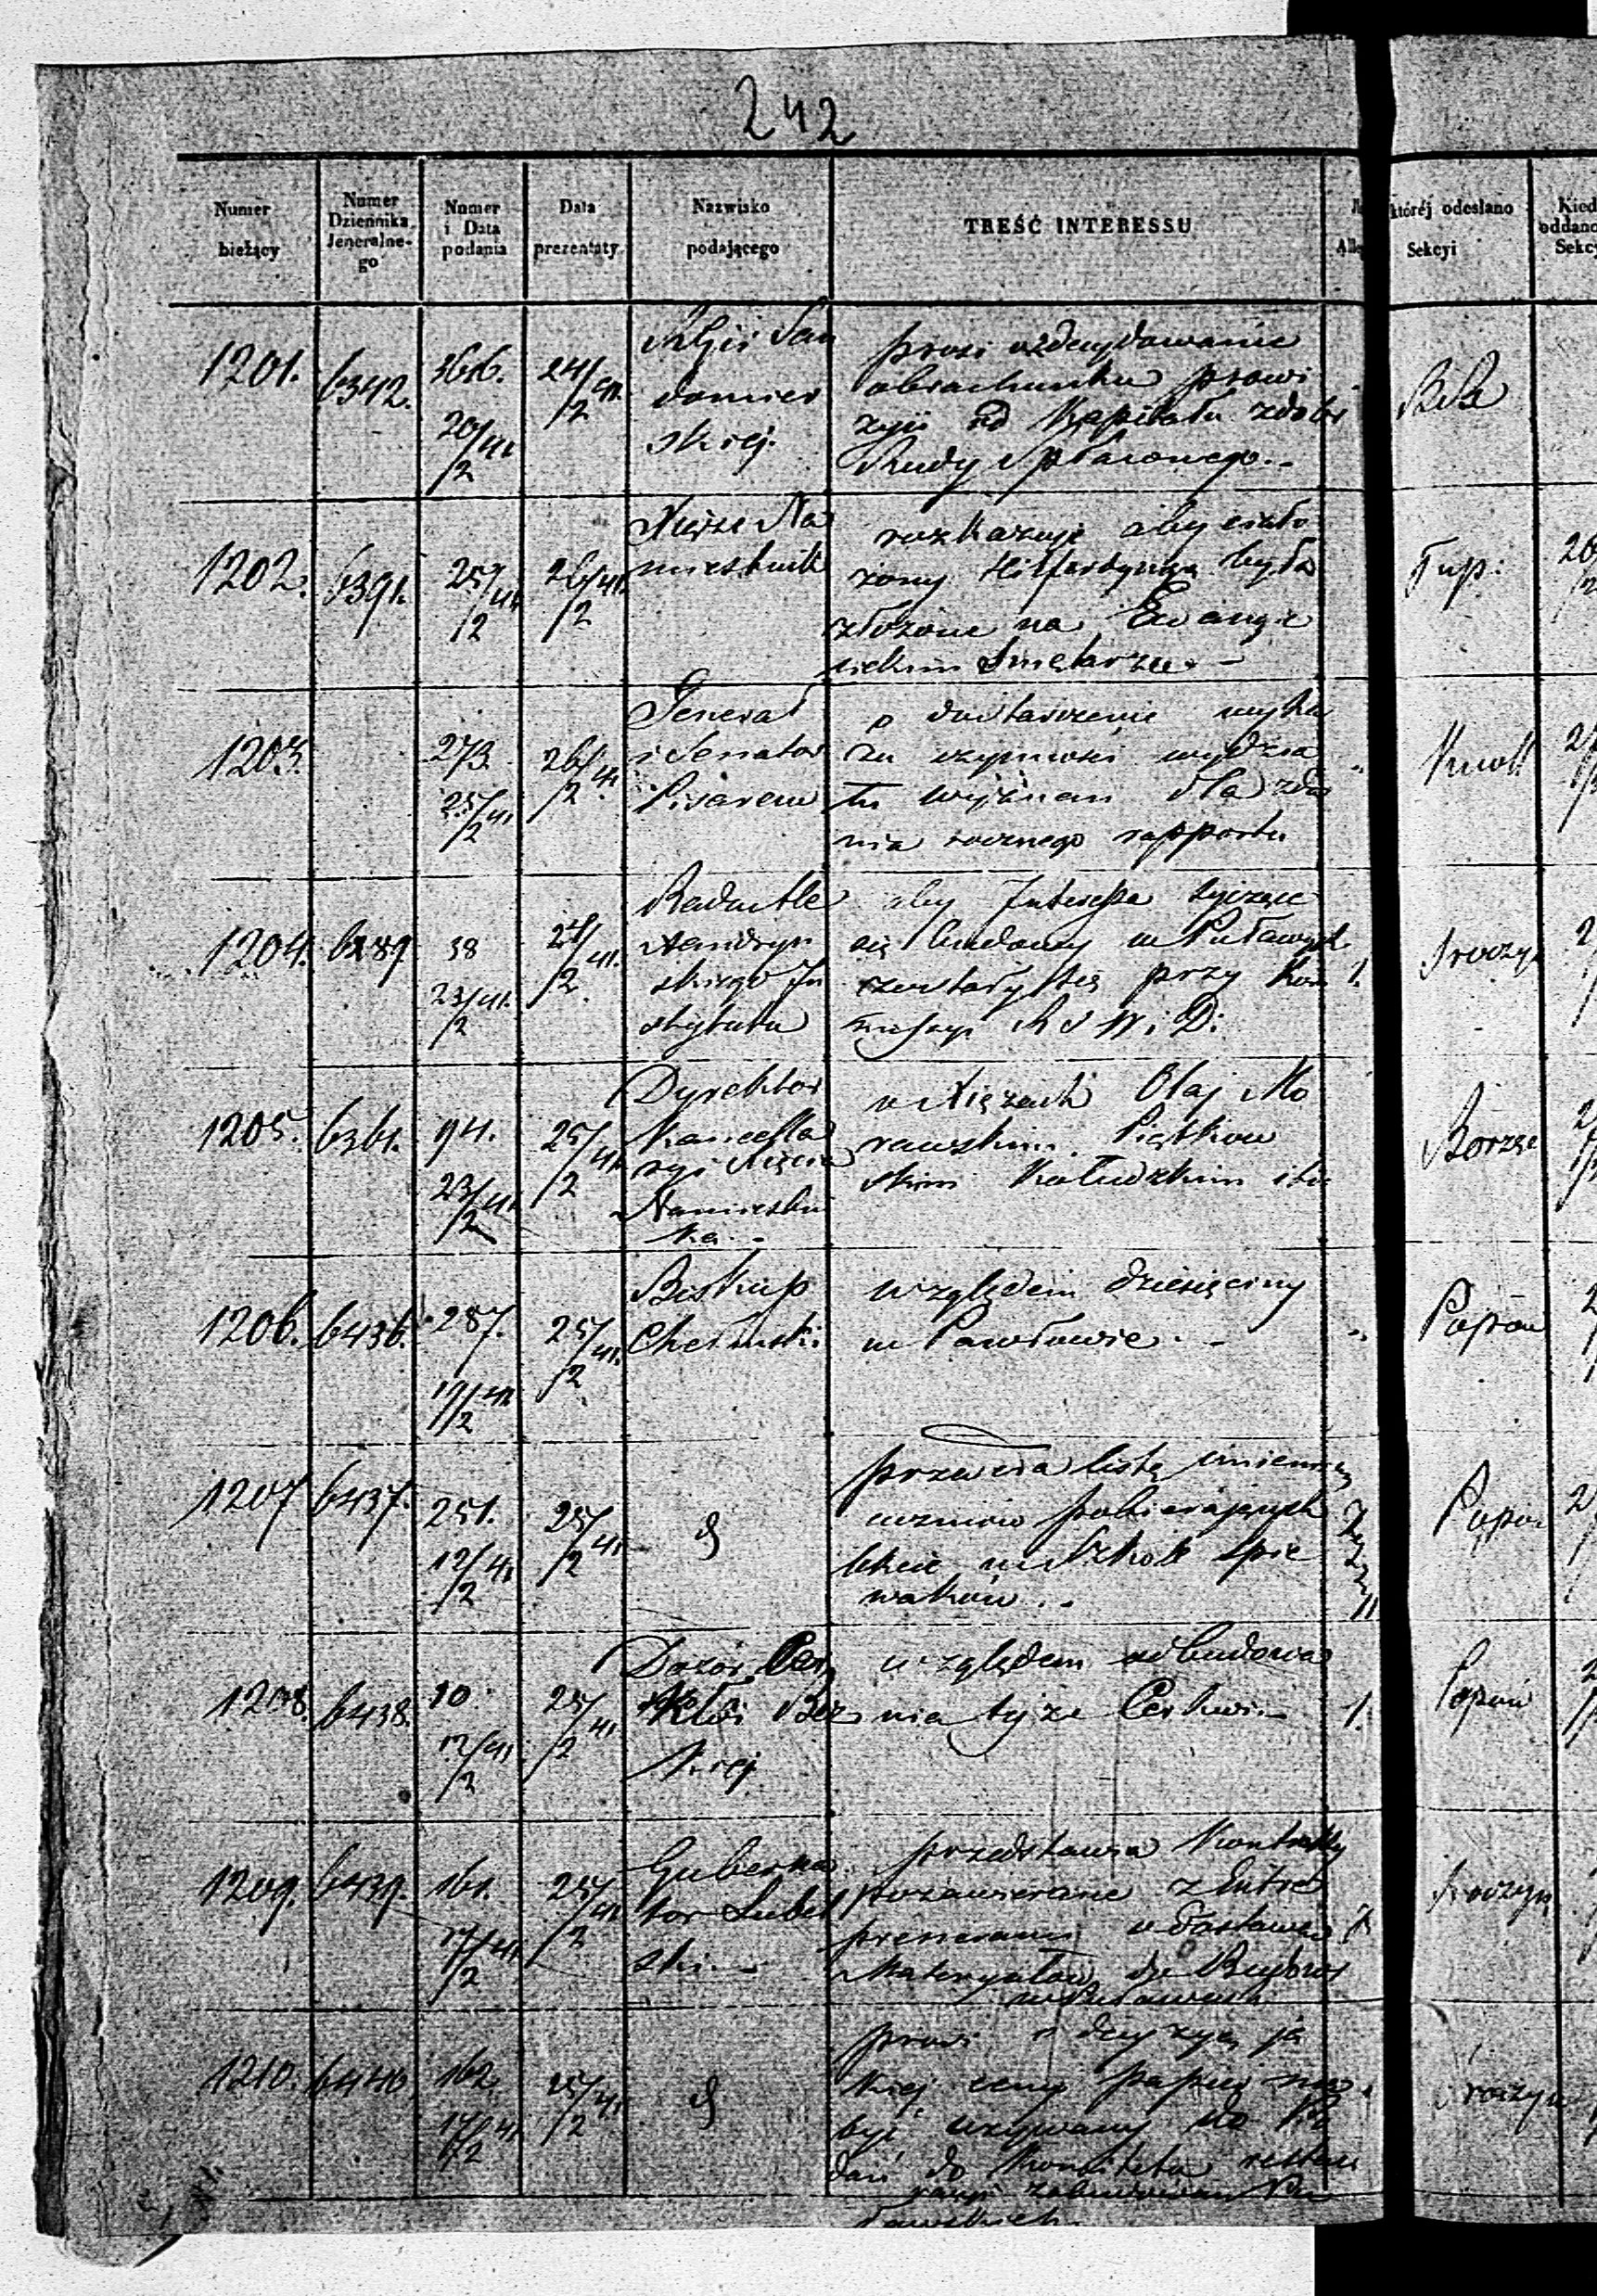 242
Numer bieżący
Numer Dziennika Jeneralne-go
Numer i Data podania
Data prezentaty
Nazwisko podającego
TREŚĆ INTERESSU
której odesłano Sekcyi
Kied oddano Sekcy
1201. 6342. 366. 20/2 41 24/2 41
San
domier
skiej
prosi o zdecydowanie
obrachunku prowi
zyi od Kapitału z dóbr
Rudy spłaconego.-
1202. 6391. 25/2 41 26/2 41.
Xiąże Na
miestnik
rozkazuje aby ciało
żony było
złożone na Ewangie
lickim Smętarzu.-
Tup:
1203. 273. 25/2 41. 26/2 41.
Jenerał
i Senator
Pisarew
o dostarczenie wyka
zu czynności wydzia
łu wyznań dla zda
nia rocznego rapportu
1204. 6289 38 23/2 41. 24/2 41.
Rada Ale
xandryn
skiego In
stytutu
aby Interessa tyczące
się budowy w Puławach
zostały się przy Kom
missyi R S W i D:
1.
1205. 6361. 94. 23/2 41. 25/2 41.
Dyrektor
Kancella
ryi Xięcia
Namiestni
ka.-
o Xiężach Olaj Mo
rawskim Piątkow
skim
Borzęc
1206. 6436. 287. 19/2 41. 25/2 41.
Biskup
Chełmski.
względem dziesięciny
w Pawłowie.-
Popow
1207 6437. 251. 12/2 41. 25/2 41.
przesyła listę imienną
uczniów pobierających
lekcie w Szkole śpie
waków.-
Popow
1208. 6438. 10. 12/2 41. 25/2 41
Dozór Cer
kwi
względem odbudowa
nia tejże Cerkwi.-
1.
Popow
1209. 6439. 161. 17/2 41. 25/2 41
Guberna
tor Lubel
ski.-
przedstawia Kontrakty
pozawierane z Entre
prenerami o dostawę
Materyałów do Budowy
w Puławach
1210. 6440 162. 17/2 41. 25/2 41
prosi o decyzyę ja
kiej ceny papier ma
być używany do Po
dań do Komitetu restau
racyi zabudowań Pu
ławskich.